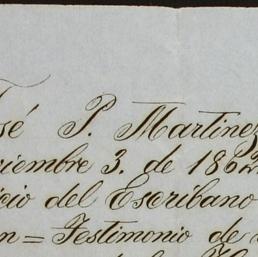 sé P. Martinez
iembre 3. de 1862
icio del Escribano
n = Testimonio de